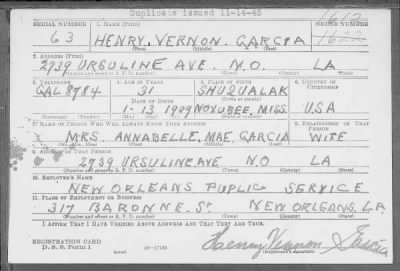 Duplicate issued 11-14-45
SERIAL NUMBER 1. NAME (Print) ORDER NUMBER
63 HENRY. VERNON. GARCIA 1622
(First) (Middle) (Last)
2. ADDRESS (Print)
2739 URSULINE AVE. N.O. LA
3. TELEPHONE 4. AGE IN YEARS 5. PLACE OF BIRTH 6. COUNTRY OF CITIZENSHIP
GAL 8784 31 SHUQUALAK
DATE OF BIRTH
1-13 1909 NOXUBEE, MISS. USA
7. NAME OF PERSON WHO WILL ALWAYS KNOW YOUR ADDRESS 8. RELATIONSHIP OF THAT PERSON
MRS. ANNABELLE, MAE, GARCIA WIFE
9. ADDRESS OF THAT PERSON
2739 URSULINE AVE N.O LA
10. EMPLOYER'S NAME
NEW ORLEANS PUPLIC SERVICE
11. PLACE OF EMPLOYMENT OR BUSINESS
317 BARONNE. ST NEW ORLEANS. LA.
I AFFIRM THAT I HAVE VERIFIED ABOVE ANSWERS AND THAT THEY ARE TRUE.
REGISTRATION CARD
D. S. S. Form 1 16-17105 Henry Vernon Garcia